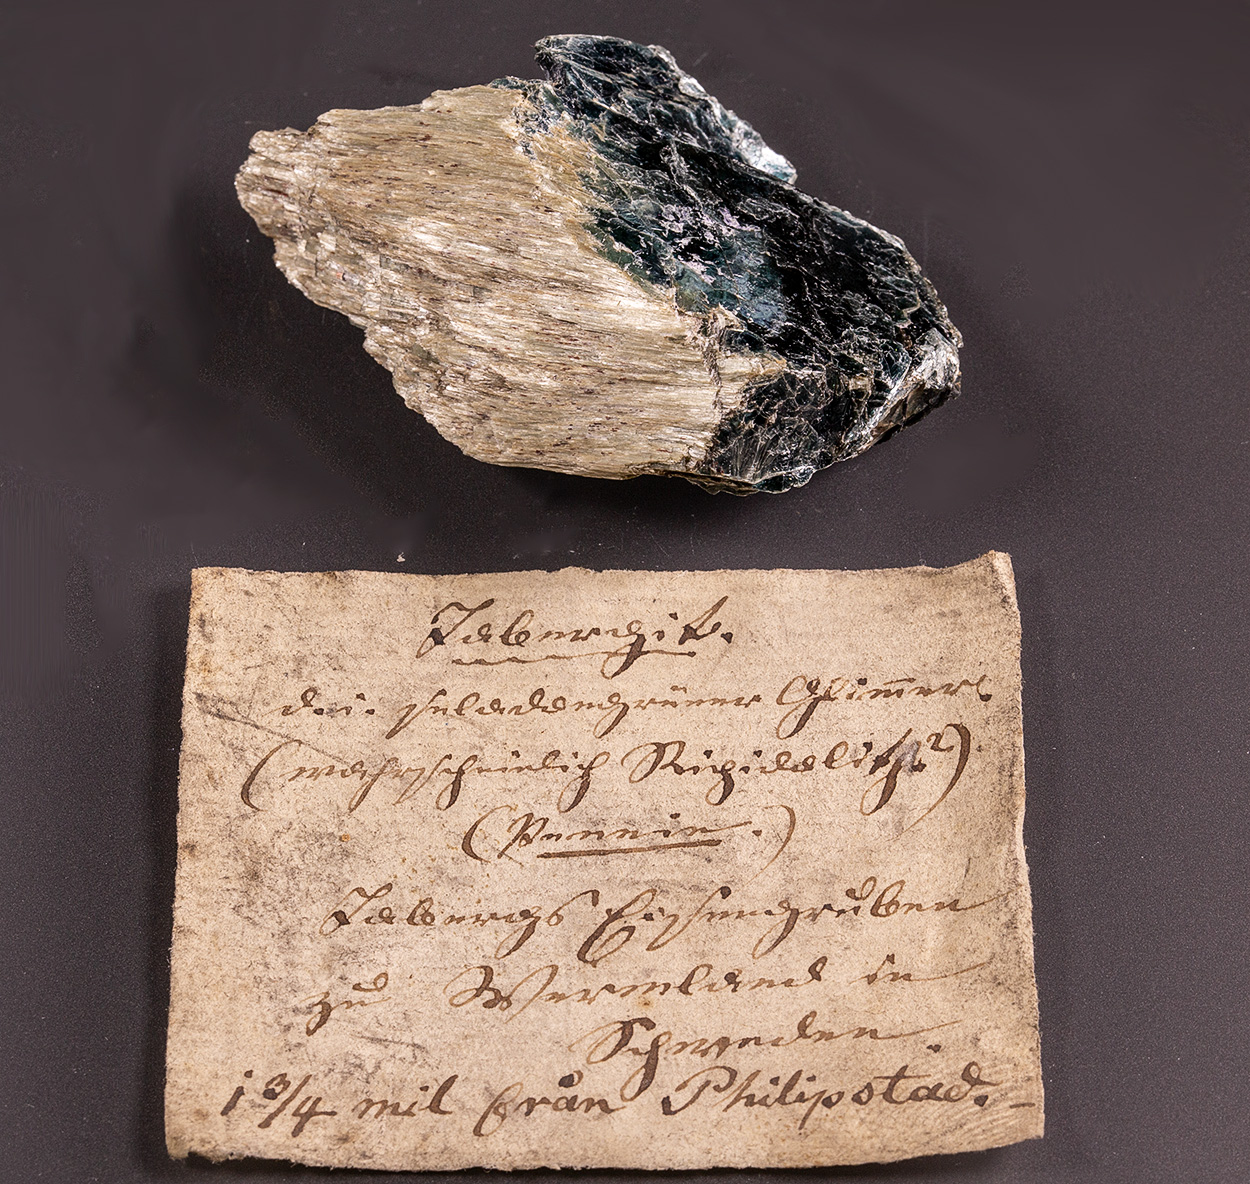 Tabergit.
d. i. seladongrüner Glimmer.
(wahrscheinlich Ripidolith?)
(Pennin.)
Tabergs Eisengruben
zu Wermland in
Schweden.
1 3/4 mil från Philipstad. –